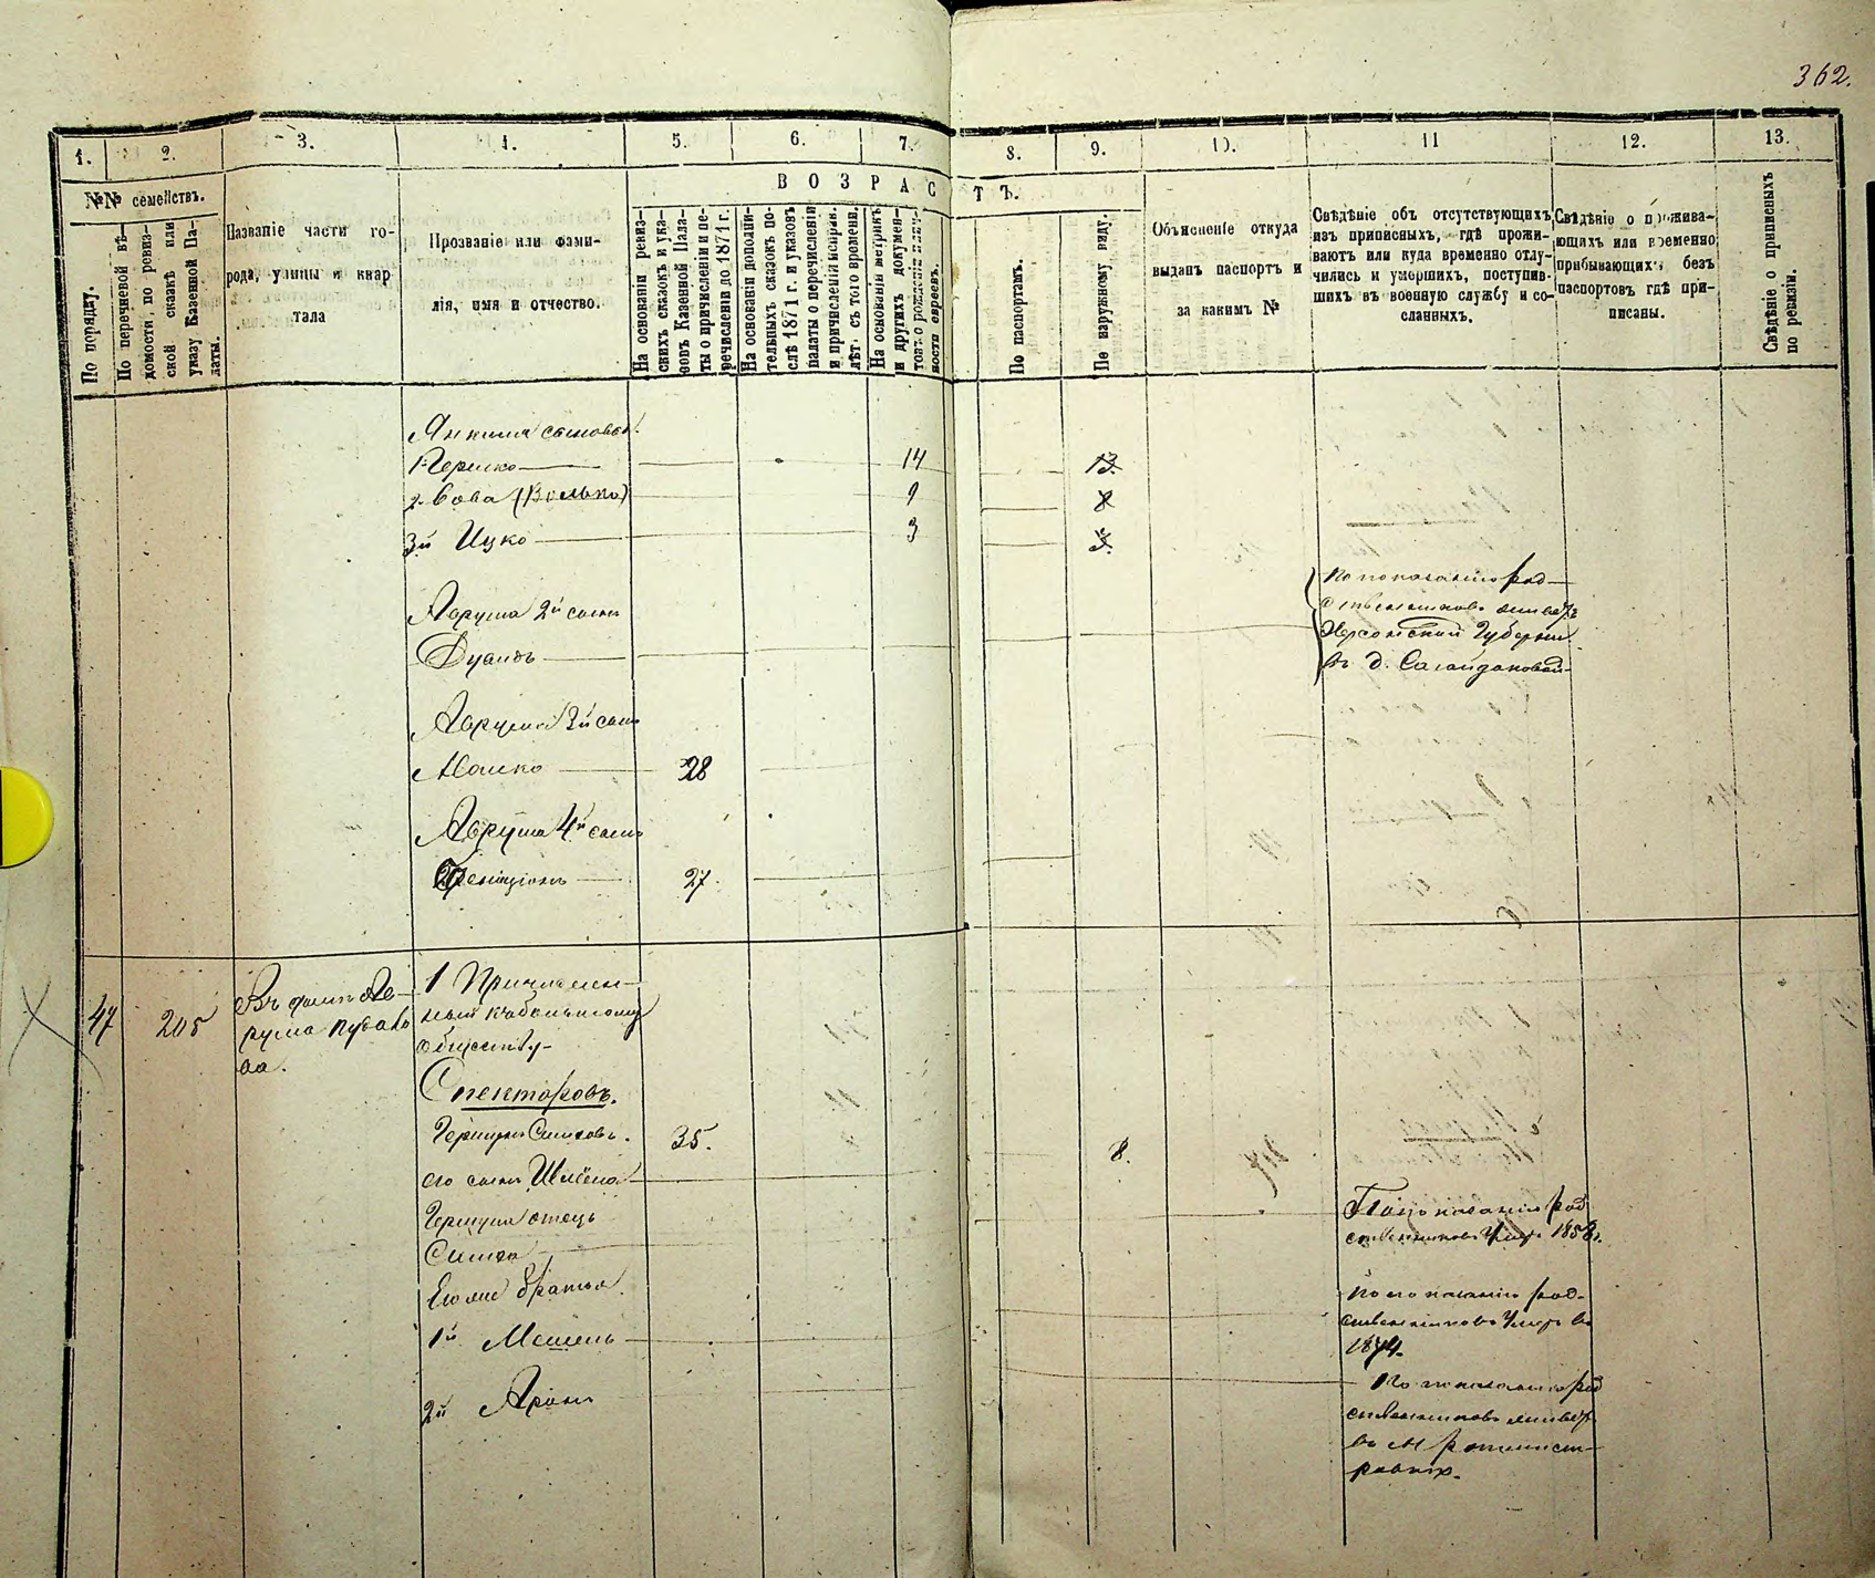 362.
1.
2.
3.
4.
5.
6.
7.
8.
9.
10.
11
12.
13.
№№ семействъ.
ВОЗРАСТЪ.
По порядку.
По перечневой вѣ-
домости, по ревиз-
ской сказкѣ или
указу Казенной Па-
латы.
Названіе части го-
рода, улицы и квар
тала
Прозваніе или фами-
лія, имя и отчество.
На основаніи ревиз-
скихъ сказокъ и ука-
зовъ Казенной Пала-
ты о причисленіи и пе-
речисленіи до 1871 г.
На основаніи дополни-
тельныхъ сказокъ по-
слѣ 1871 г. и указовъ
палаты о перечисленіи
и причисленій исправ.
лѣт. съ того времени.
На основаніи метрикъ
и другихъ докумен-
ности евреевъ.
По паспортамъ.
По наружному виду.
Объясненіе откуда
выданъ паспортъ и
за какимъ №
Свѣдѣніе объ отсутствующихъ
изъ приписныхъ, гдѣ прожи-
ваютъ или куда временно отлу-
чились и умершихъ, поступив-
шихъ въ военную службу и со-
сланныхъ.
Свѣдѣніе о прожива-
ющихъ или временно
прибывающихъ безъ
паспортовъ гдѣ при-
писаны.
Свѣдѣніе о приписныхъ
по ревизіи.
Янкеля сыновья.
1 Гершко 14 13.
2. Вова (Волько) 9 8
3й Ицко 3 3.
Абрума 2й сынъ
Дуvidъ
По показанію род-
ственниковъ живетъ
Херсонской Губерніи
въ д. Сагайдаковой
Абрума 3й сынъ
Мошко 28
Абрума 4й сынъ
27.
47 205 Въ домѣ Аб-
рума
ва.
1 Причислен-
ный къ
обществу
Спекторовъ.
Гершунъ Симховъ. 35.
его сынъ Шлёма 8.
Гершуна отецъ
Симха
По показанію род
ственниковъ Умеръ 1858.
Его же братья.
1й Мошень
По показанію род-
ственниковъ Умеръ въ
1874.
2й Аронъ
По показанію род
ственниковъ живетъ
въ М